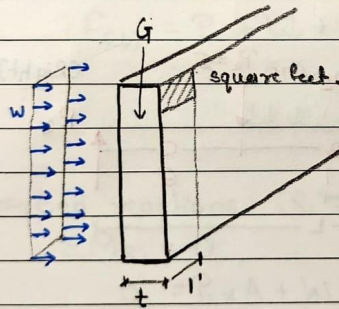 G
square feet.
w
t
1'